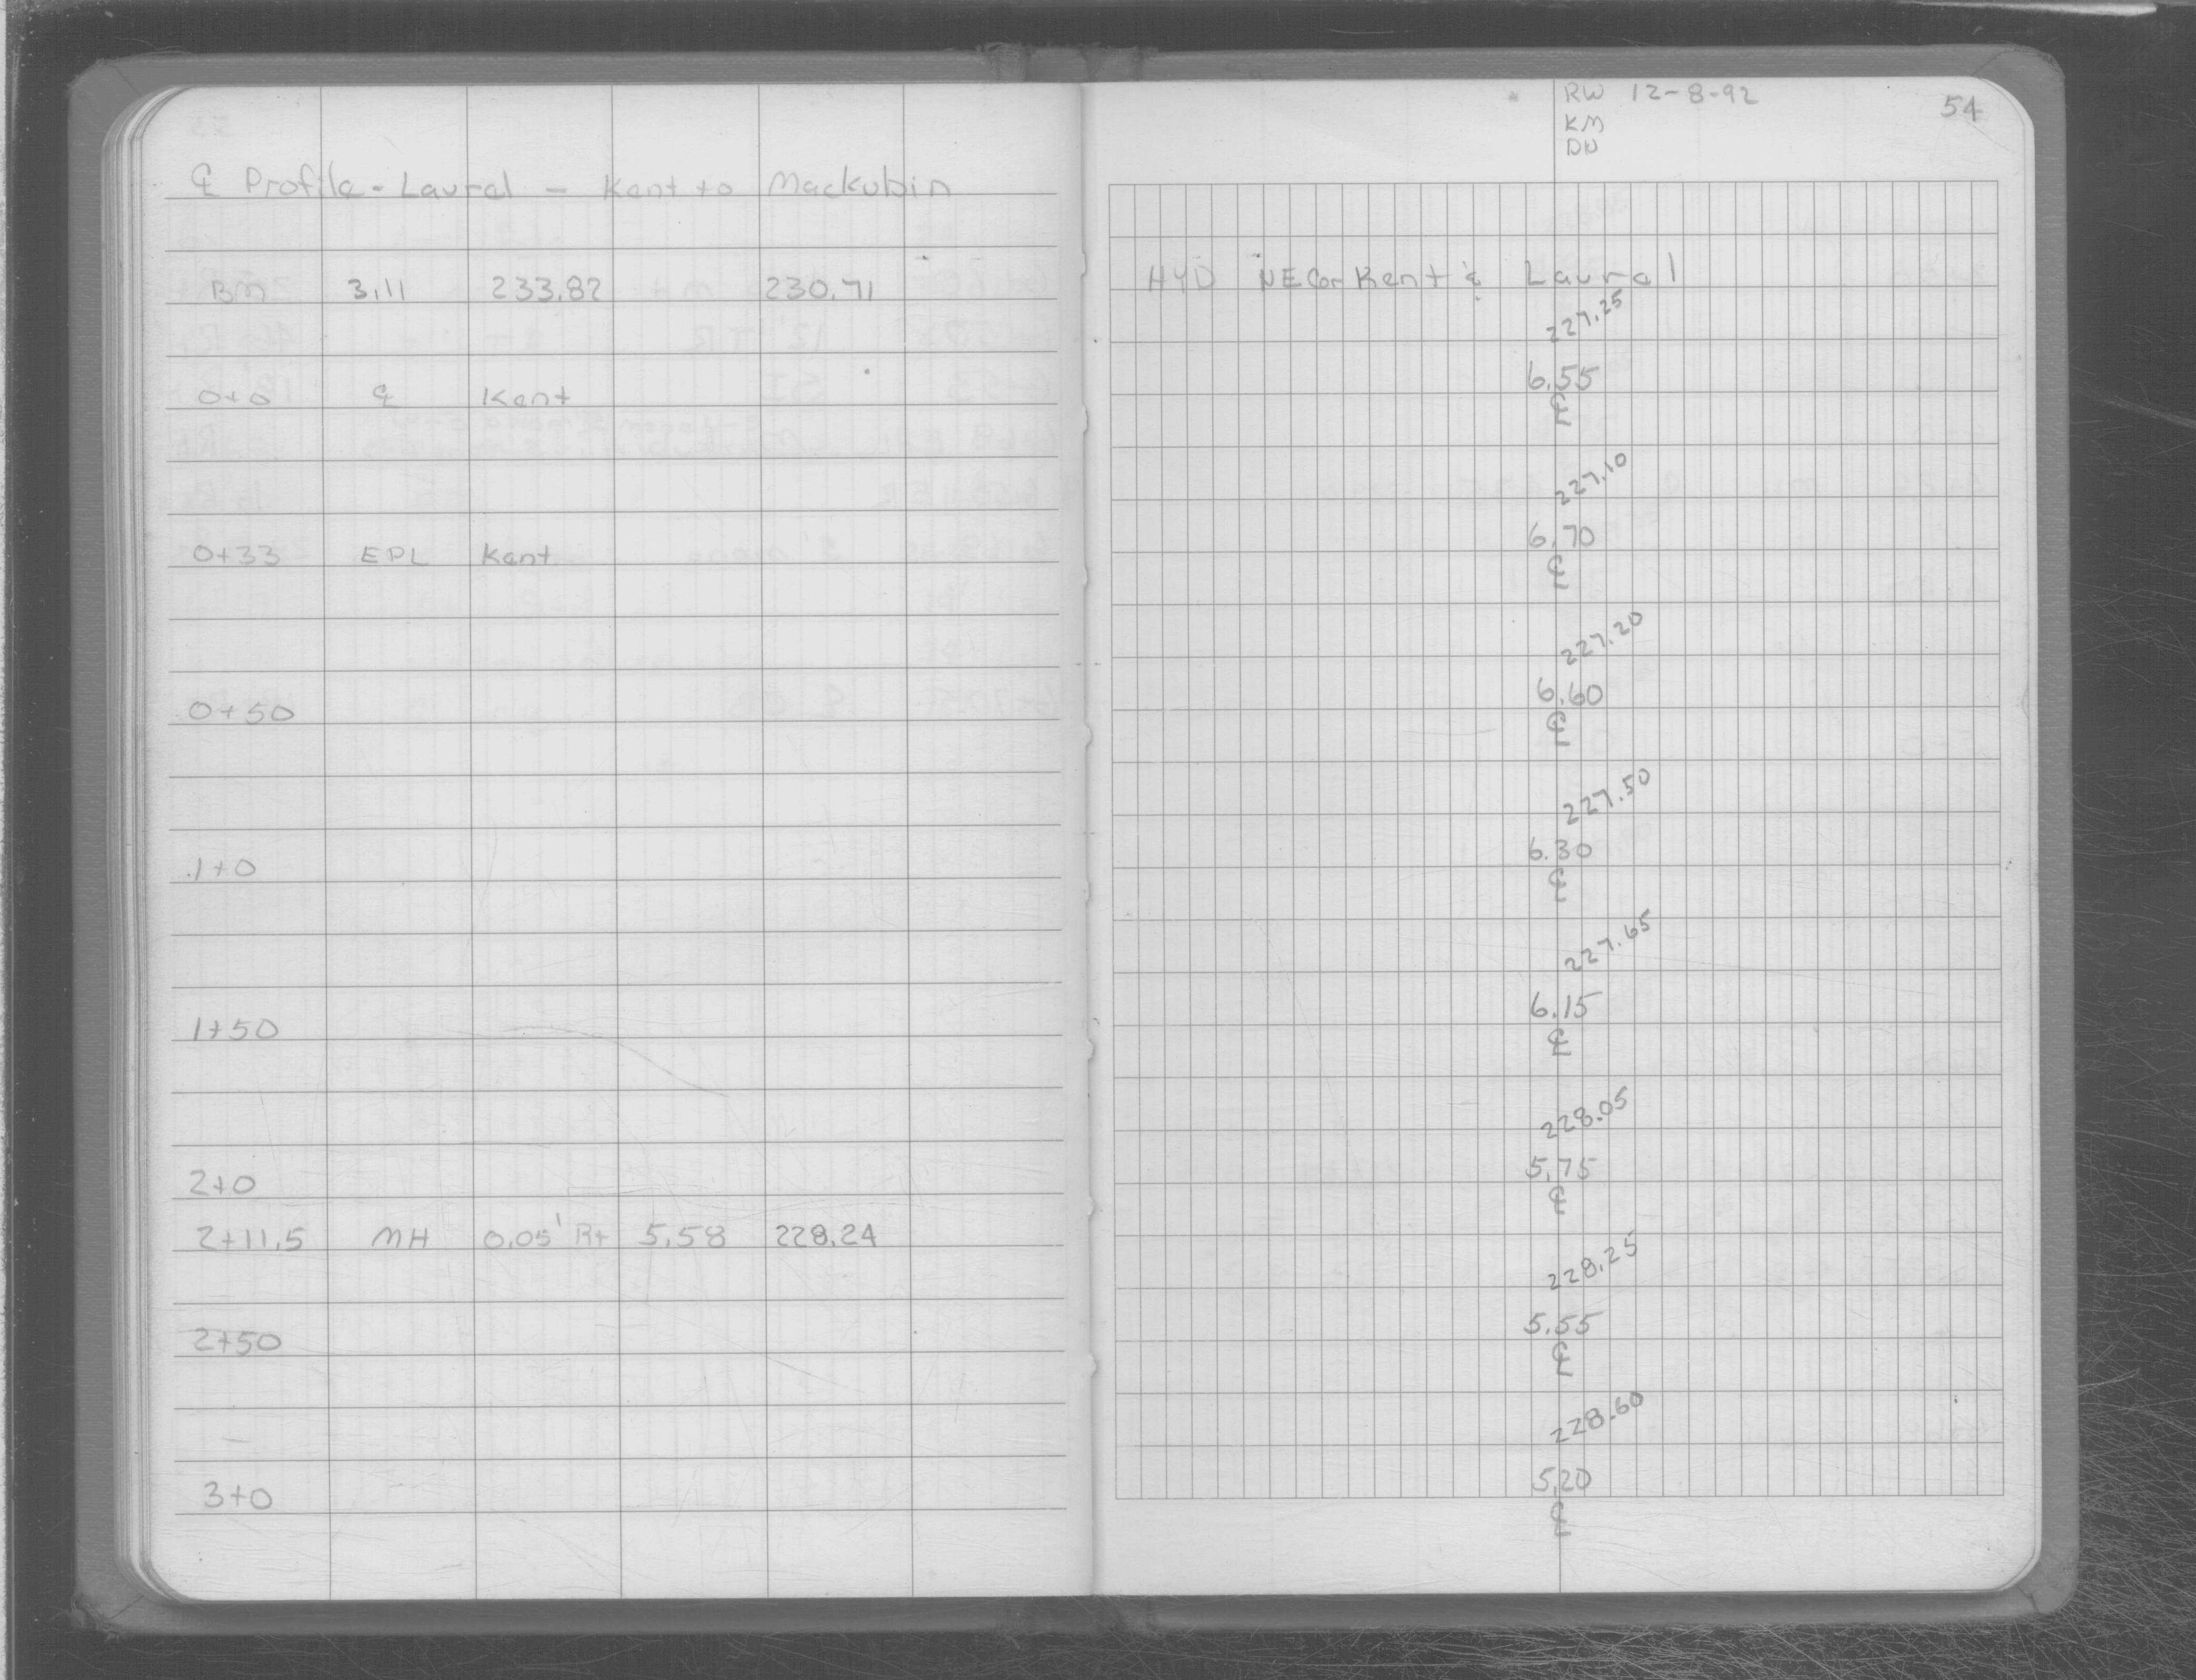 ℄ Profile - Laurel - Kent to Mackubin
BM 3.11 233.82 230.71
0+0 ℄ Kent
0+33 EPL Kent
0+50
1+0
1+50
2+0
2+11.5 MH 0.05' Rt 5.58 228.24
2+50
3+0
RW 12-8-92
KM
DW
54
HYD NE Cor Kent & Laurel
227.25
6.55
℄
227.10
6.70
℄
227.20
6.60
℄
227.50
6.30
℄
227.65
6.15
℄
228.05
5.75
℄
228.25
5.55
℄
228.60
5.20
℄